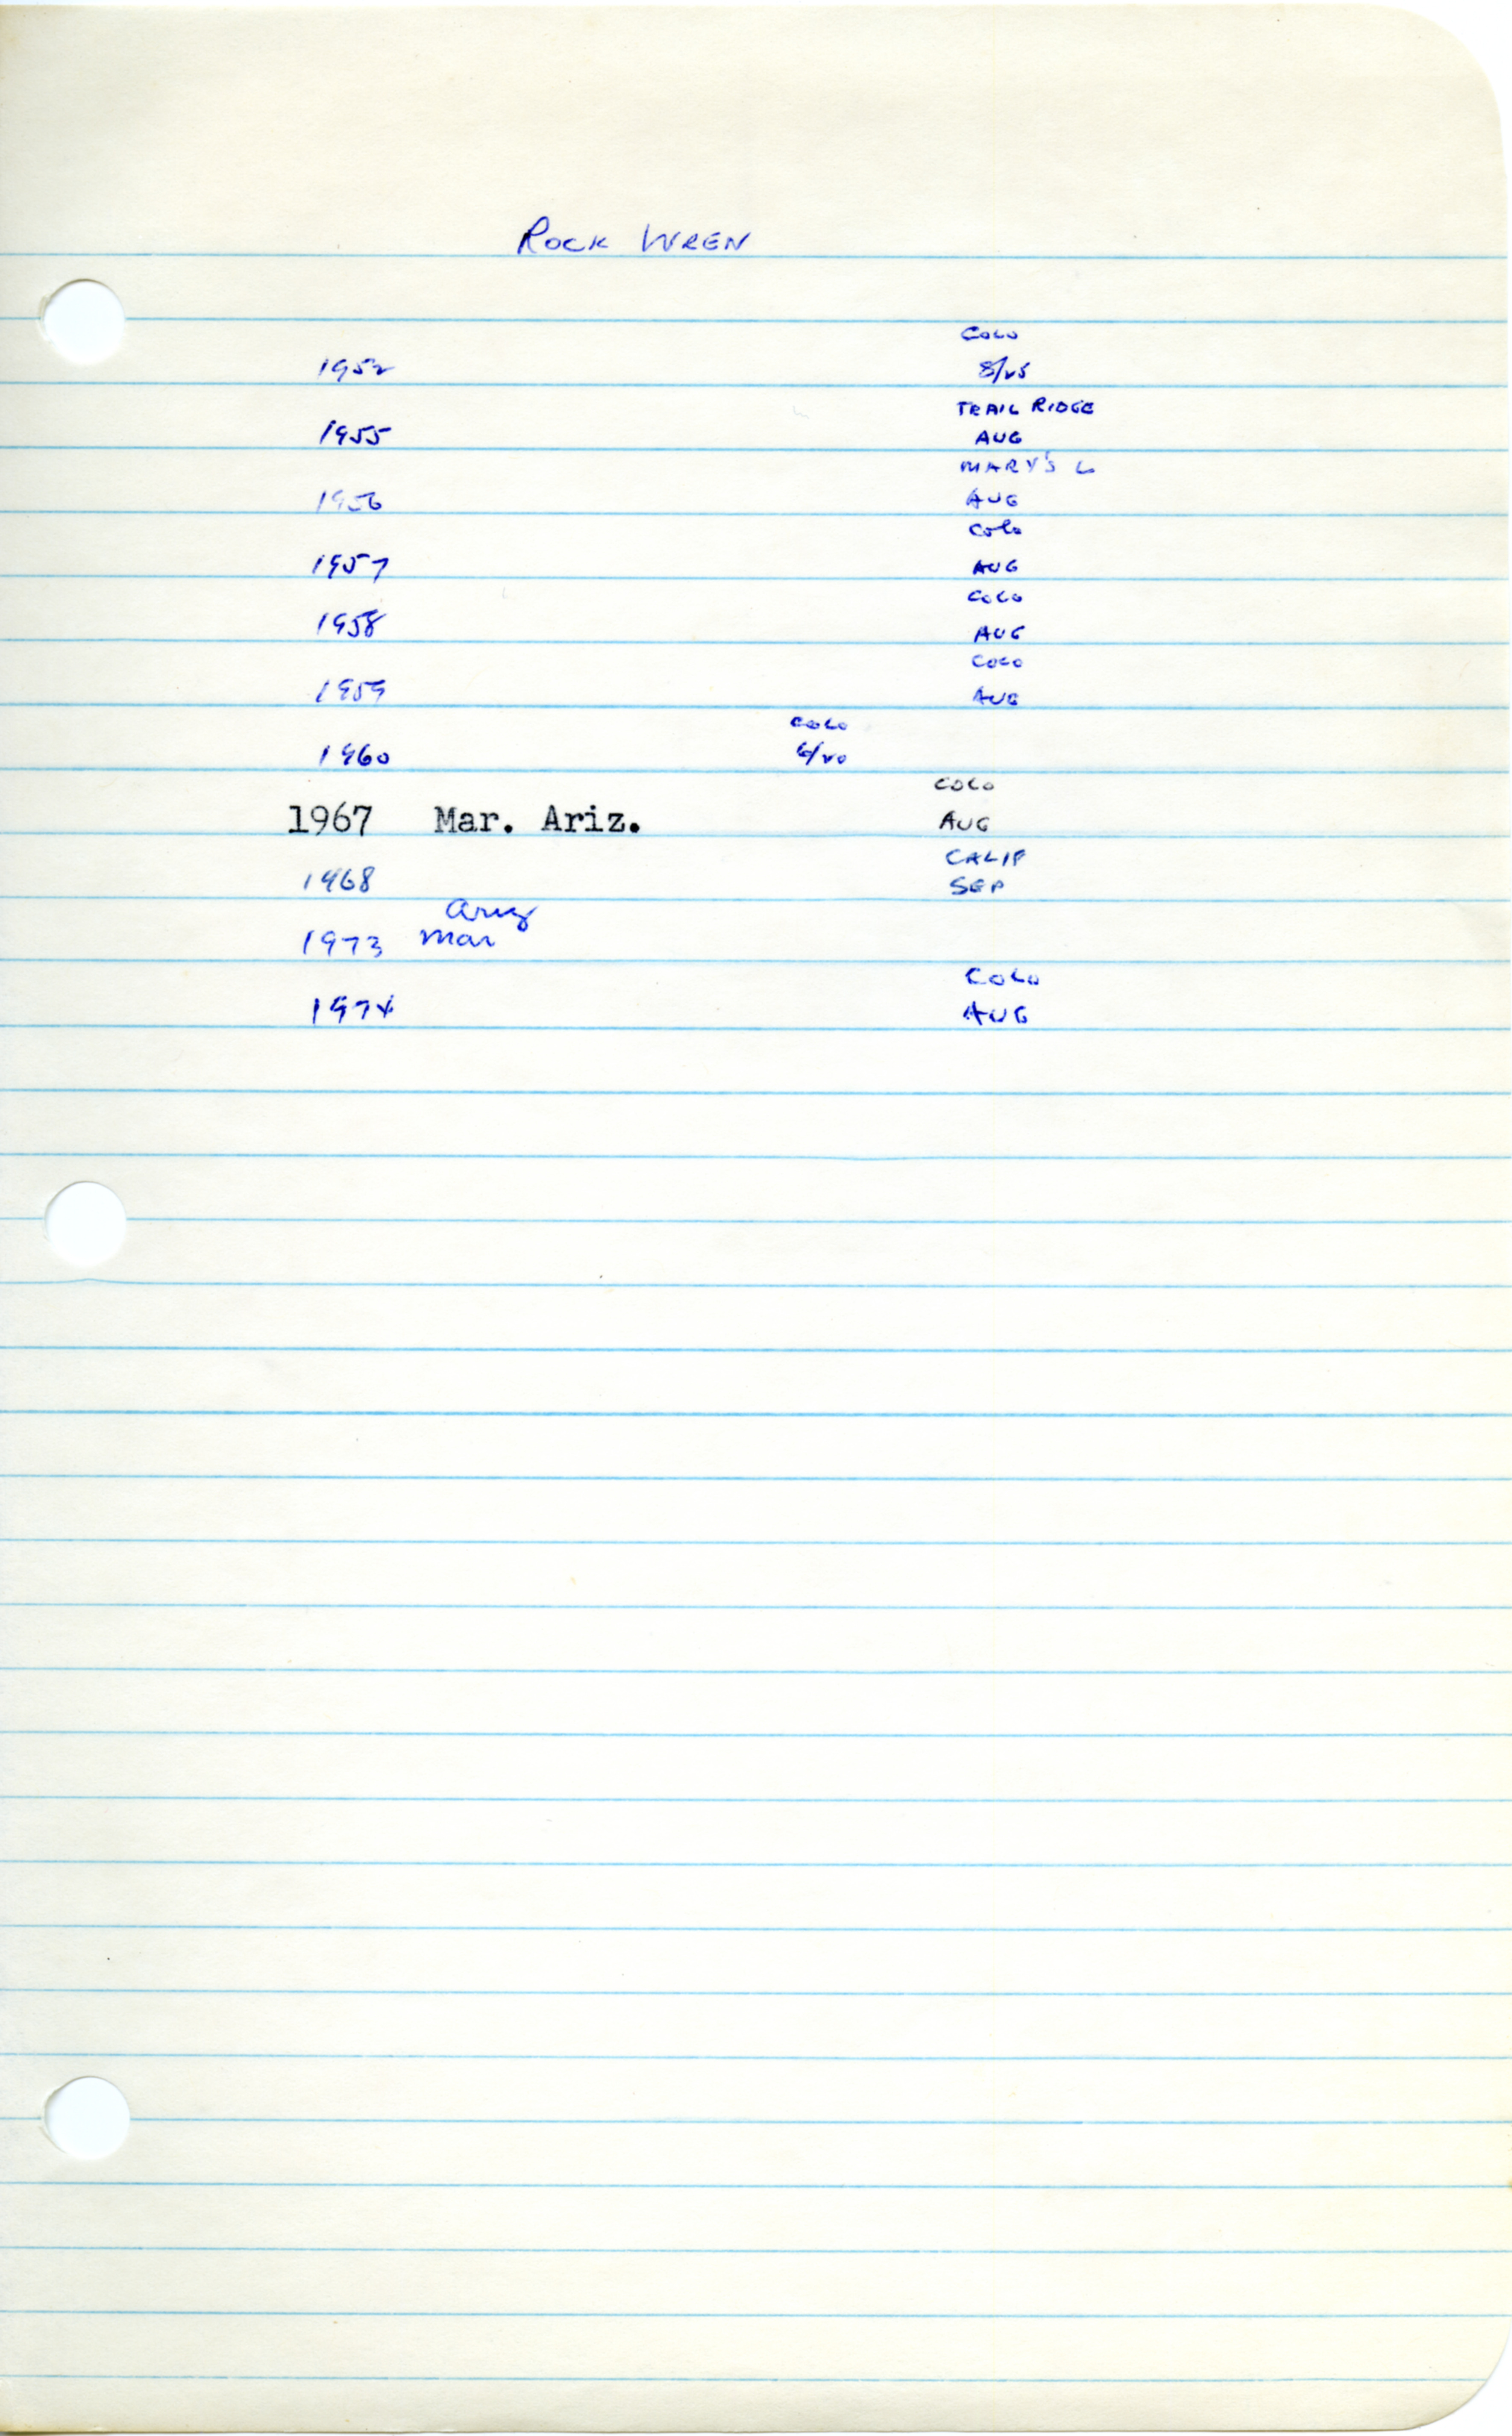 ROCK WREN
COLO
1952 8/25
TRAIL RIDGE
1955 AUG
MARY'S L
1956 AUG
COLO
1957 AUG
COLO
1958 AUG
COLO
1959 AUG
COLO
1960 6/20
COLO
1967 Mar. Ariz. AUG
CALIF
1968 SEP
Ariz
1973 Mar
COLO
1974 AUG